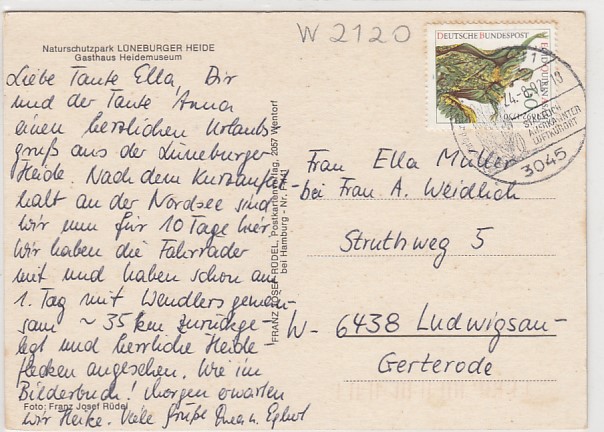 W 2120
Naturschutzpark LÜNEBURGER HEIDE
Gasthaus Heidemuseum
Liebe Tante Ella, Dir
und der Tante Anna
einen herzlichen Urlaubs
gruß aus der Lüneburger
Heide. Nach dem Kurzaufent-
halt an der Nordsee sind
wir nun für 10 Tage hier.
Wir haben die Fahrräder
mit und haben schon am
1. Tag mit Wendlers gemein-
sam ~ 35 km zurückge-
legt und herrliche Heide-
flecken angesehen. Wie im
Bilderbuch! Morgen erwarten
wir Heike. Viele Grüße
Foto: Franz Josef Rüdel
FRANZ JOSEF RÜDEL, Postkartenverlag, 2057 Wentorf
bei Hamburg - Nr.
DEUTSCHE BUNDESPOST
LUFTKURORT
3045
Frau Ella Müller
bei Frau A. Weidlich
Struthweg 5
W- 6438 Ludwigsau-
Gerterode